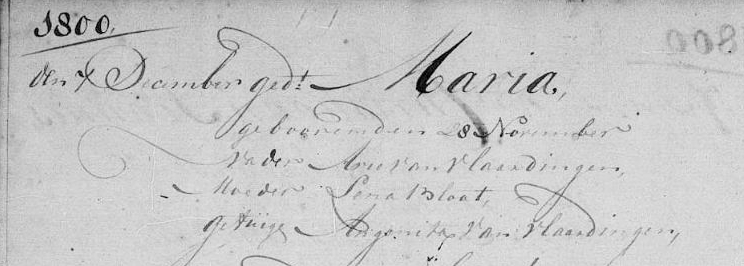 1800.
den 7 December gedt. Maria,
gebooren den 28 November
Vader Arie Van Vlaardingen,
Moeder Lena Bloot,
getuige Angenita Van Vlaardingen,